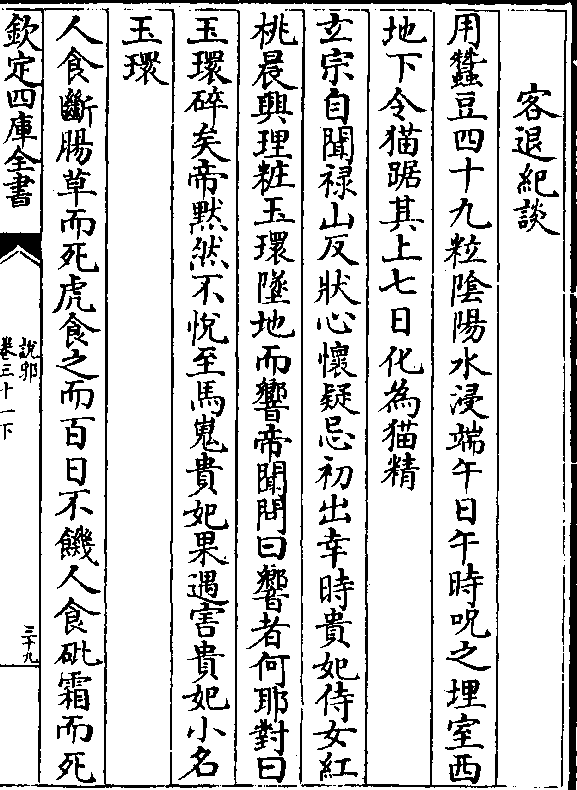 客退紀談
用蠶豆四十九粒陰陽水浸端午日午時呪之埋室西
地下令猫踞其上七日化為猫精
玄宗自聞禄山反狀心懷疑忌初出幸時貴妃侍女紅
桃晨興理粧玉環墜地而響帝聞問曰響者何耶對曰
玉環碎矣帝黙然不悅至馬嵬貴妃果遇害貴妃小名
玉環
人食斷腸草而死虎食之而百日不饑人食砒霜而死
欽定四庫全書
說郛
卷三十一下
三十九